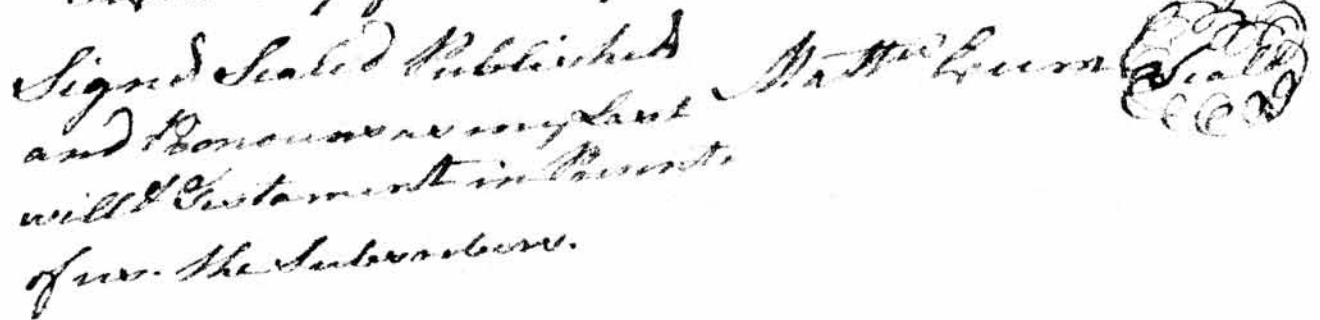 Signd Sealed Published
and Pronouns as my Last
will & Testament in Presents
of us. the Subscribers.
Matthw Lum Seal